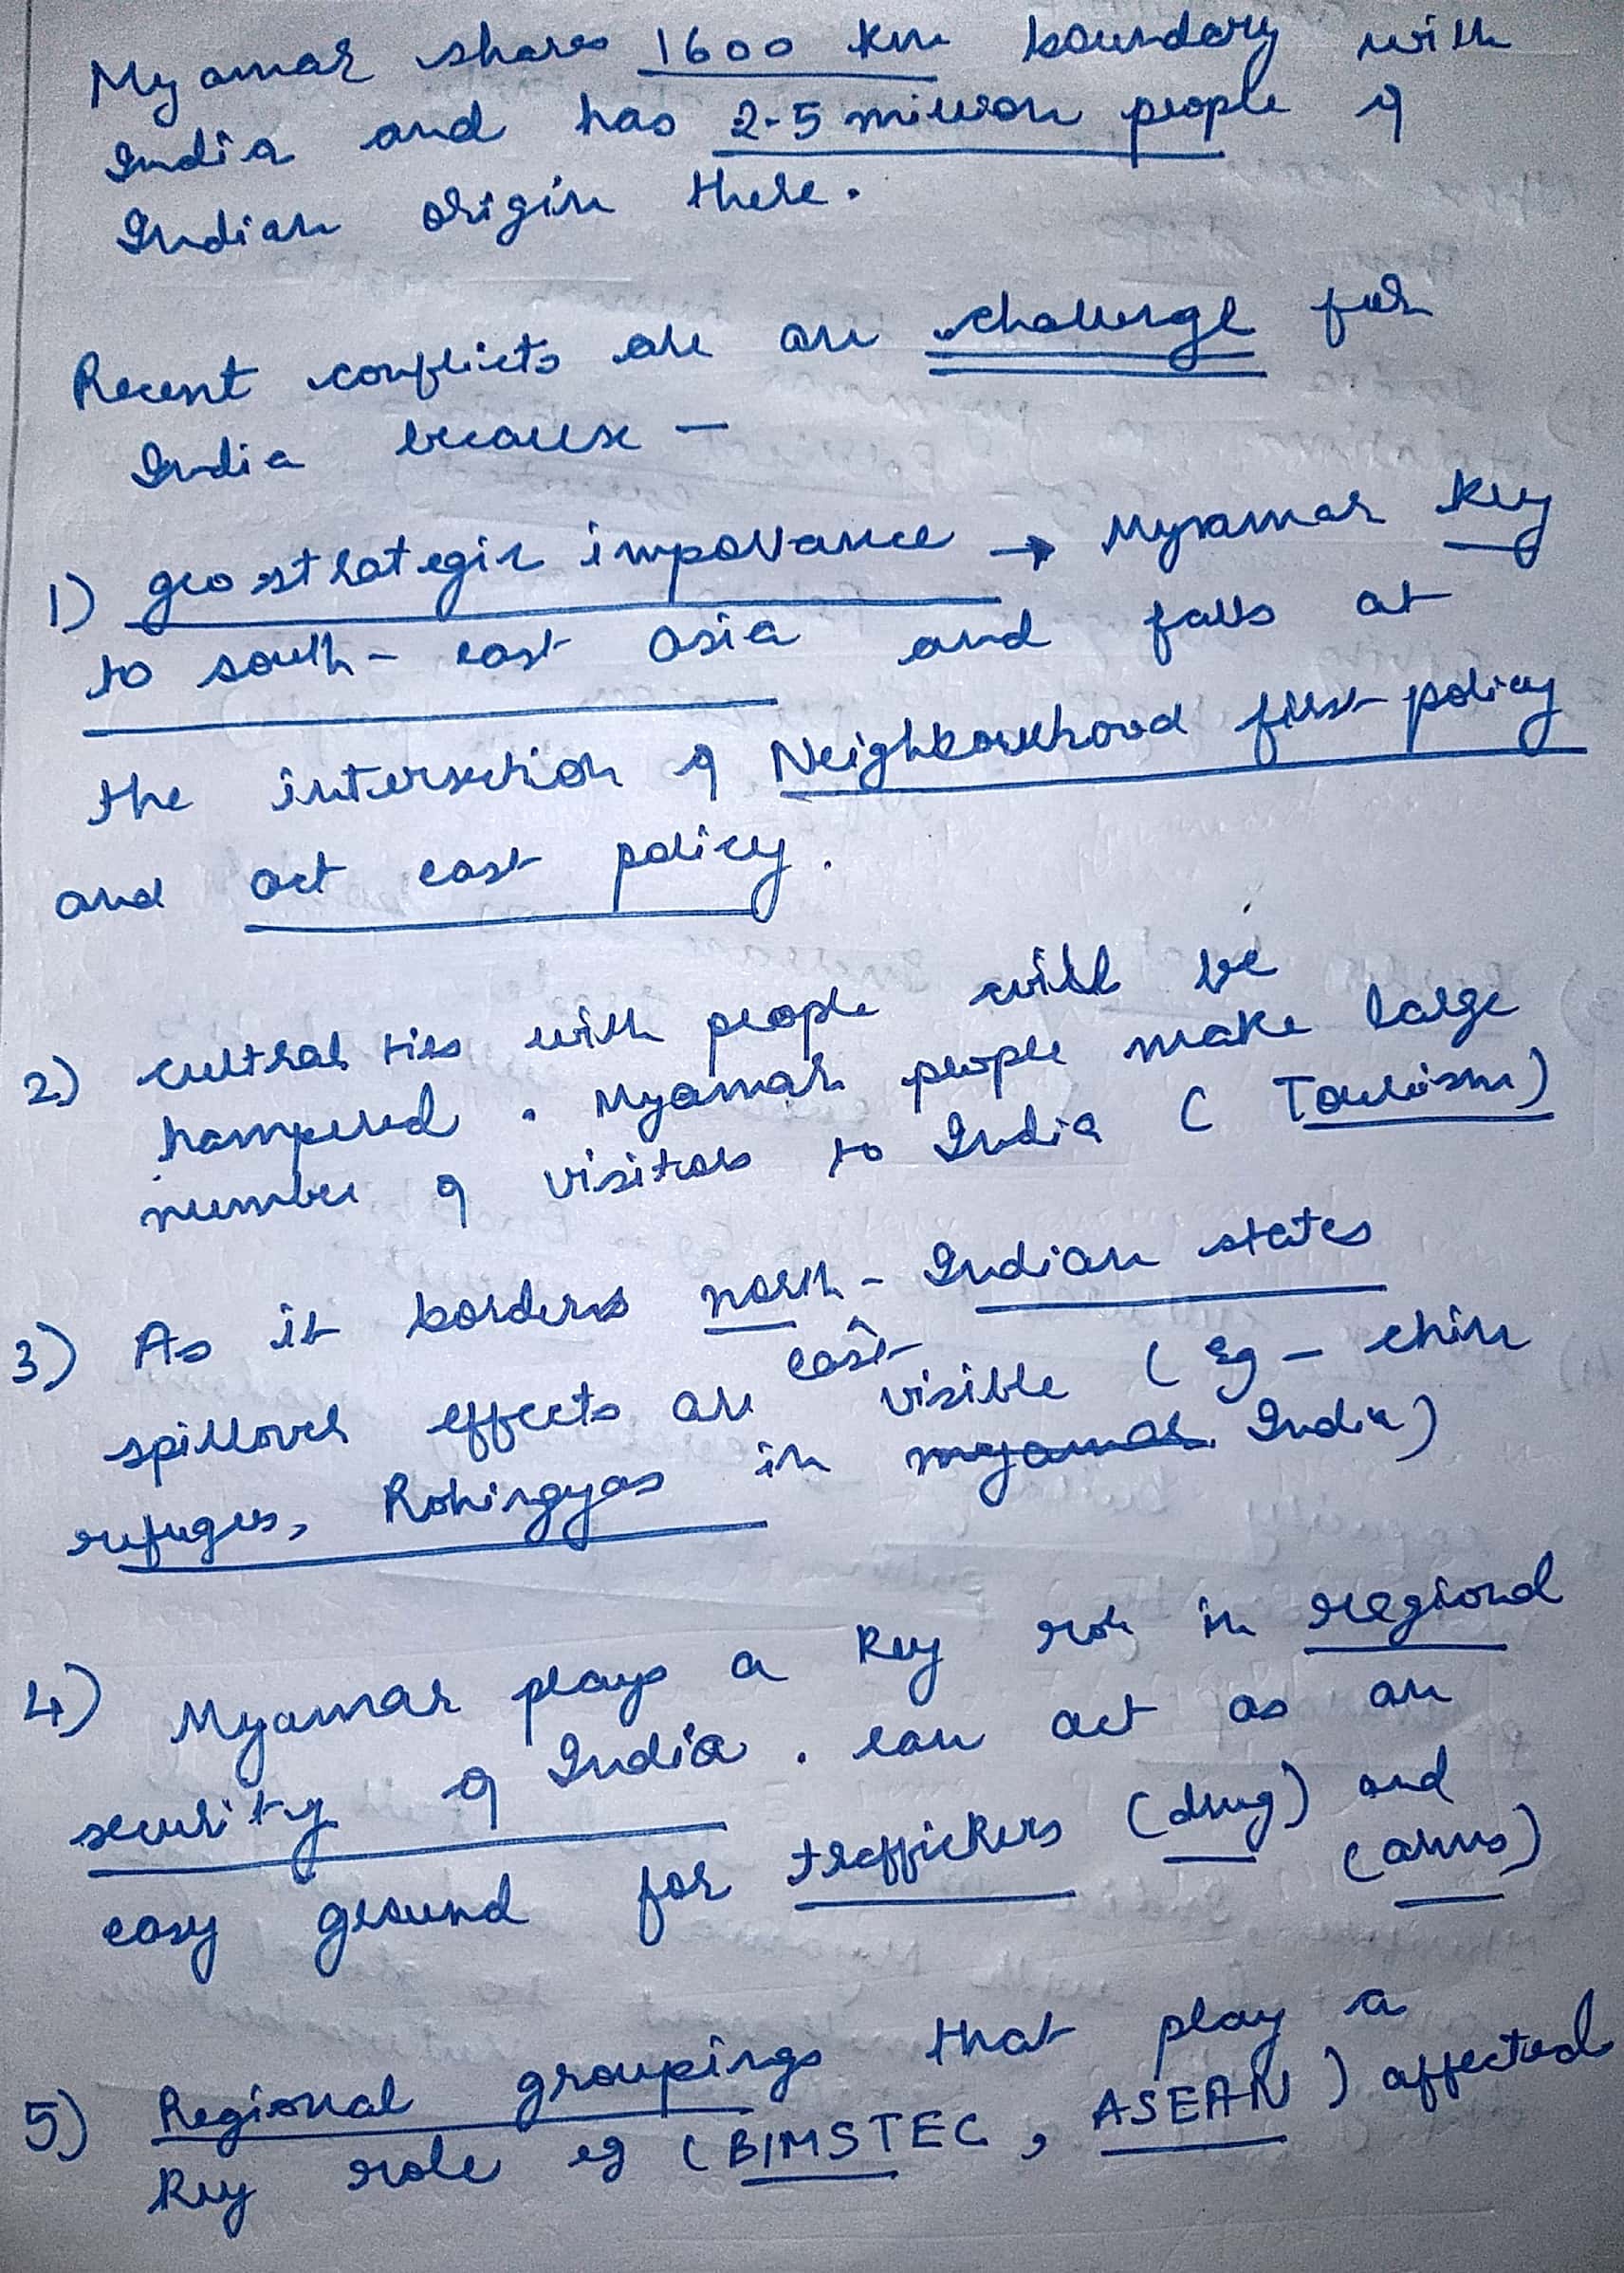 Myamar shares 1600 km boundary with
India and has 2.5 million people of
Indian origin there.
Recent conflicts are an challenge for
India because -
1) geostrategic importance → Myramar key
to south-east asia and falls at
the intersection of Neighbourhood first policy
and act east policy.
2) cultral ties with people will be
hampered. Myamar people make large
number of visitors to India (Tourism)
3) As it borders north-east Indian states
spillover effects are visible (Eg - chin
refuges, Rohingyas in myamar India)
4) Myamar plays a key role in regional
security of India. can act as an
easy ground for traffickers (drug) and (arms)
5) Regional groupings that play a
key role eg (BIMSTEC, ASEAN) affected